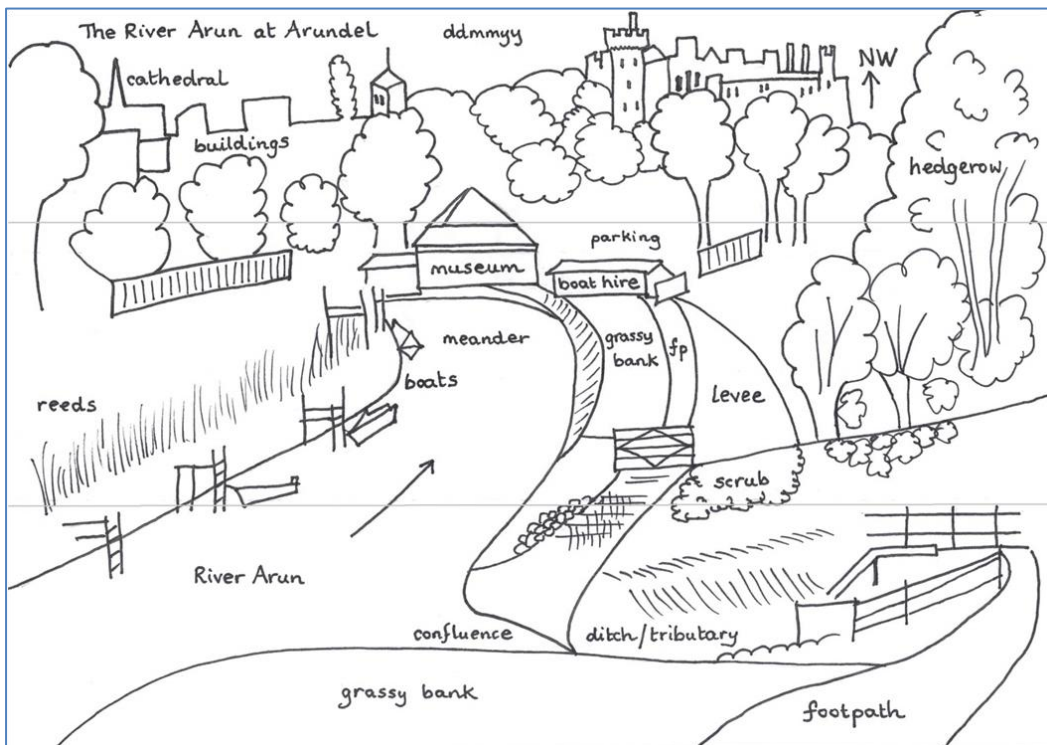 The River Arun at Arundel
ddmmyy
NW
cathedral
buildings
hedgerow
parking
museum
boat hire
meander
grassy
bank
fp
boats
levee
reeds
scrub
River Arun
confluence
ditch/tributary
grassy bank
footpath